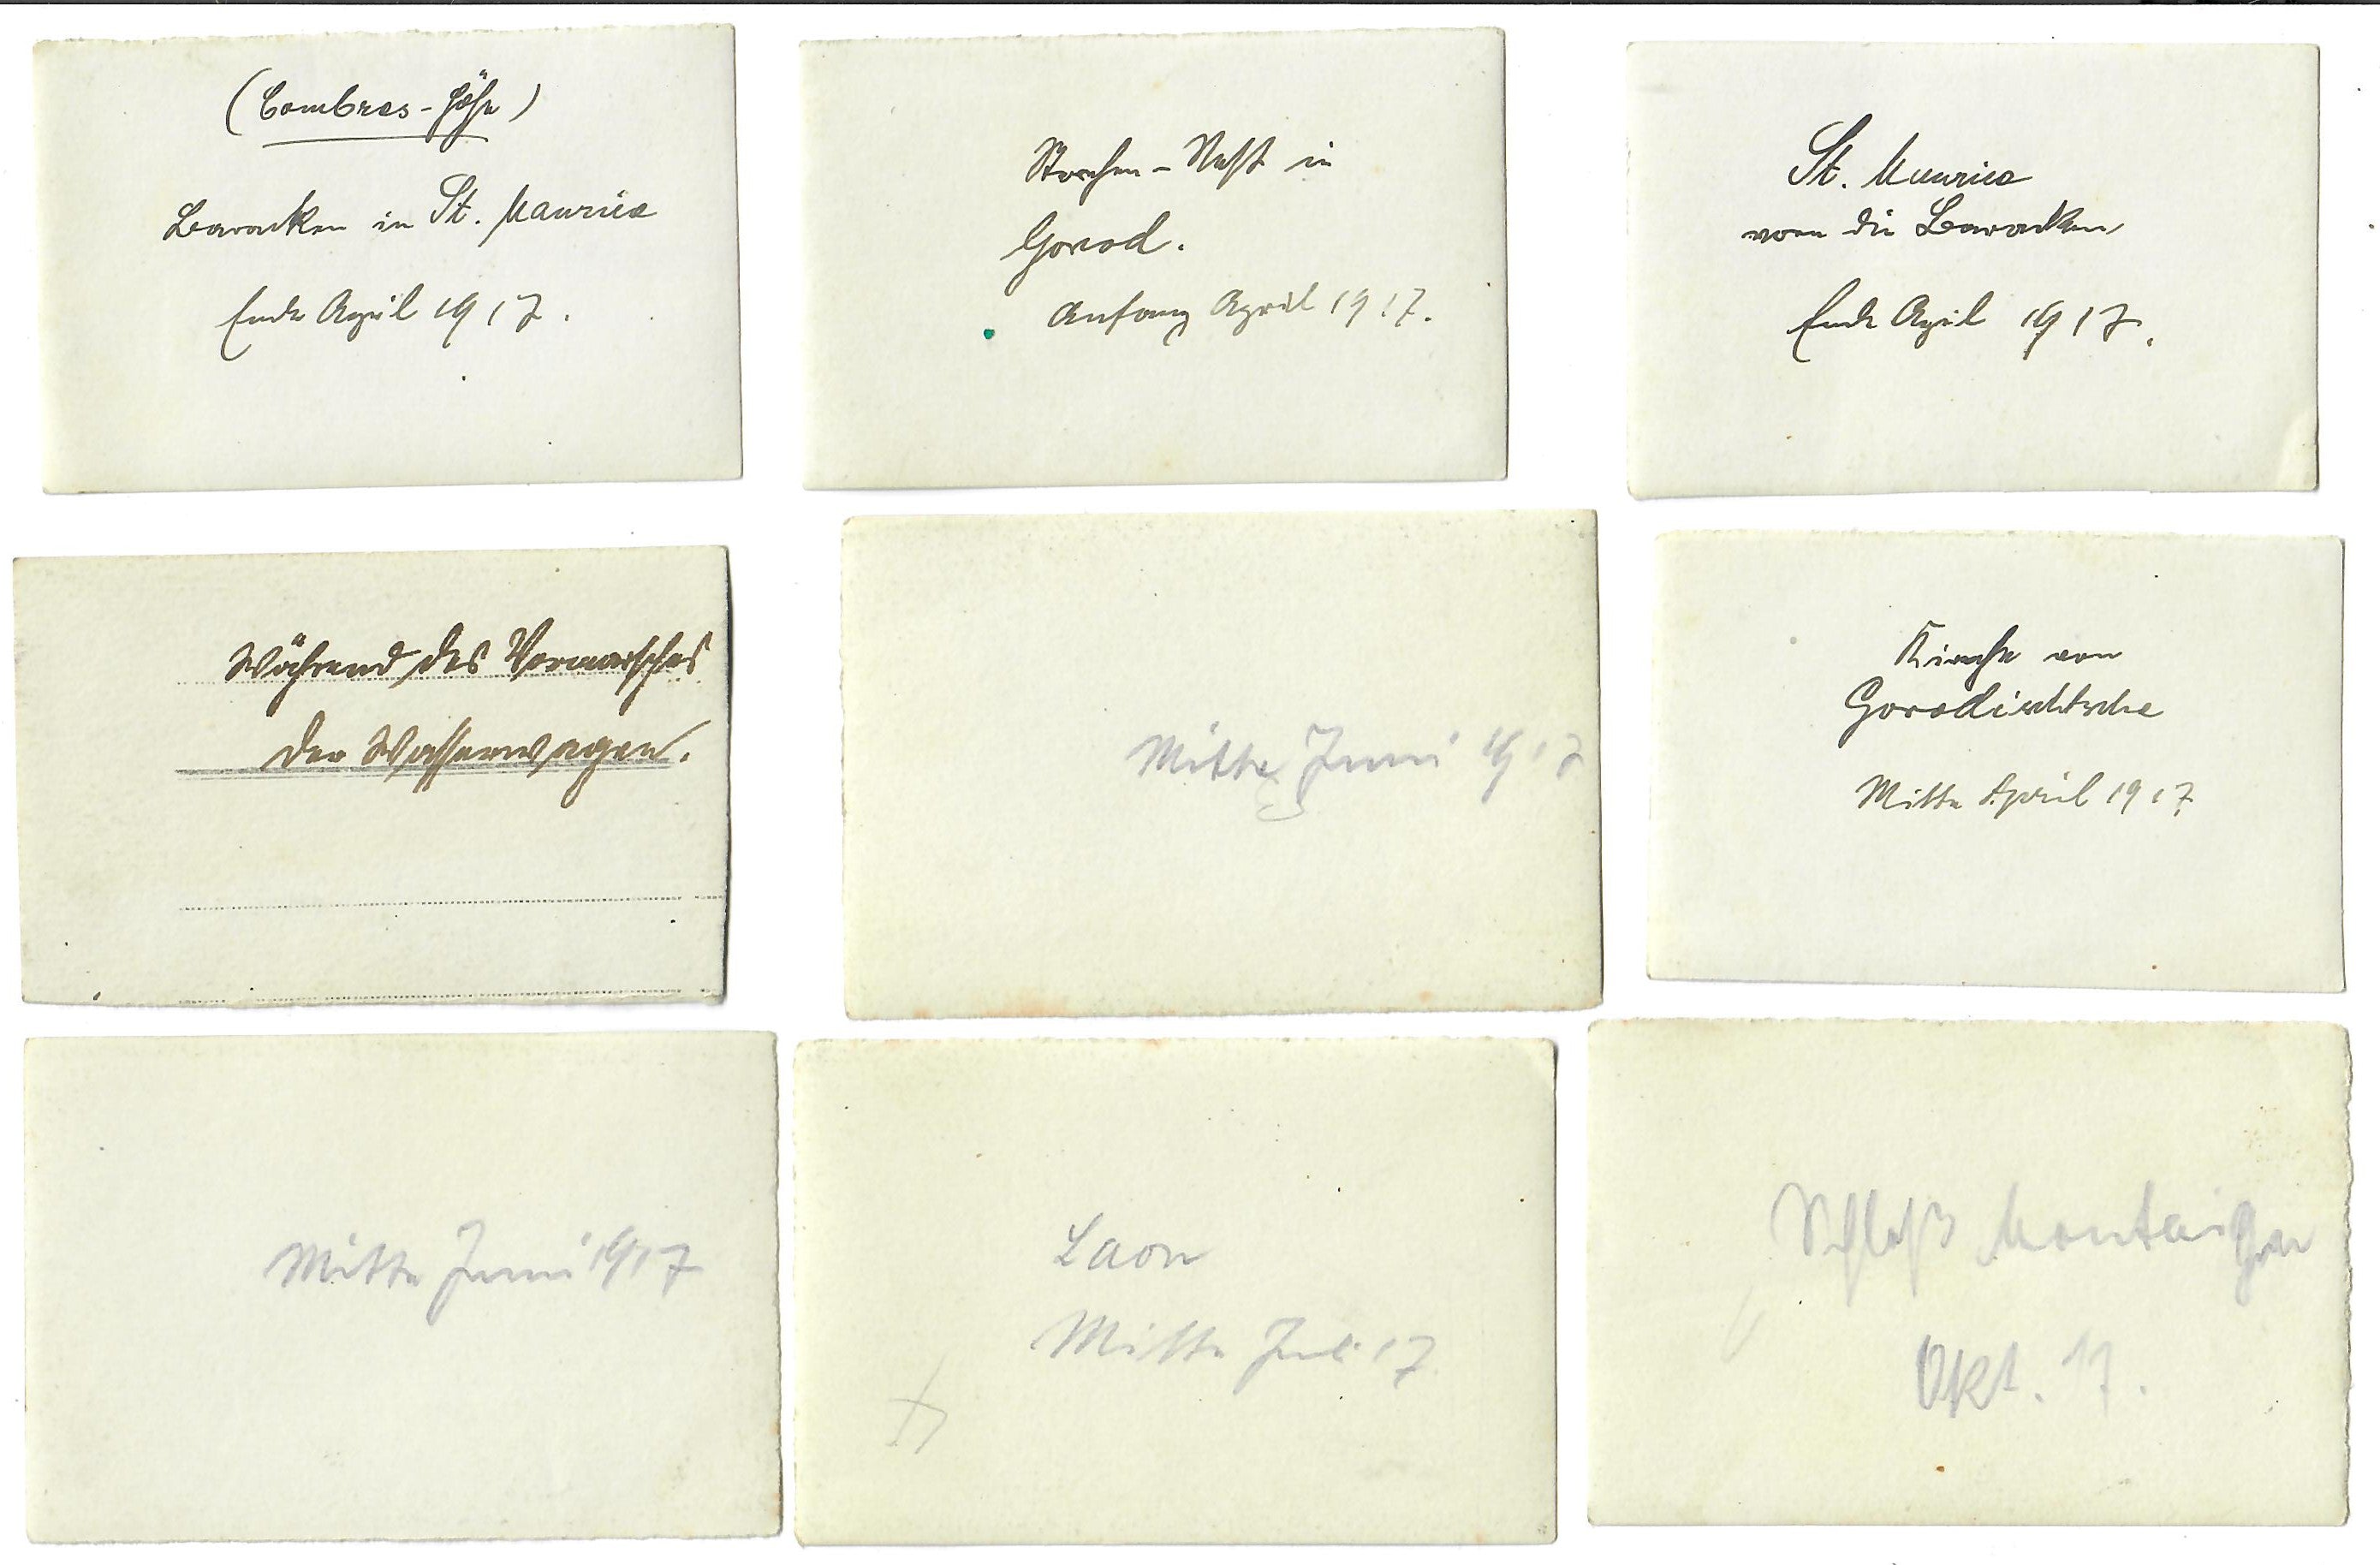 (Combres-Höhe)
Baracken in St. Maurice
Ende April 1917.
Storchen-Nest in
Gorod.
Anfang April 1917.
St. Maurice
vorn die Baracken
Ende April 1917.
Während des Vormarsches
Der Wasserwagen.
Mitte Juni 1917
Kirche von
Gorodischtsche
Mitte April 1917
Mitte Juni 1917
Laon
Mitte Juli 17
Schloß
Okt. 17.